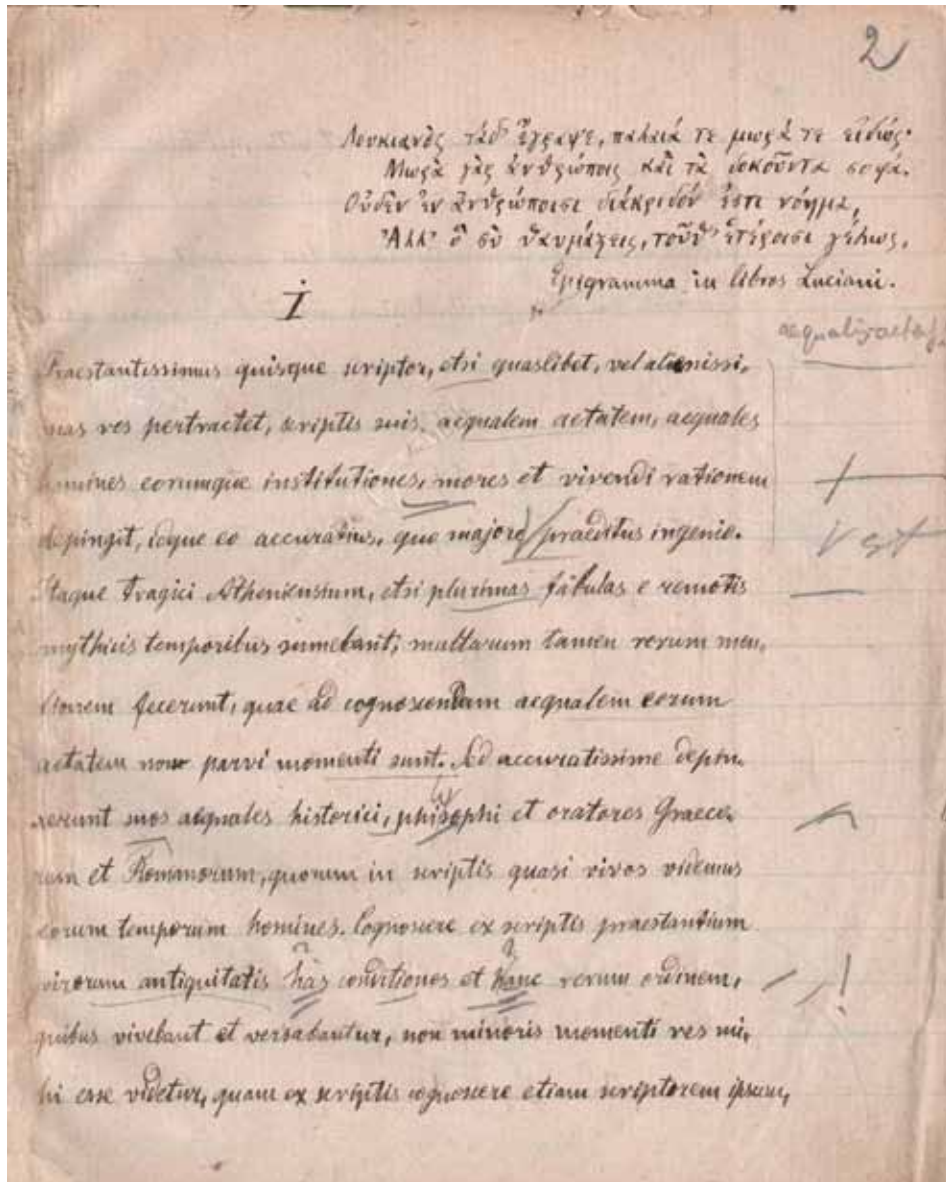 2
Λουκιανὸς τάδ' ἔγραψε, παλαιά τε μωρά τε εἰδώς·
Μωρὰ γὰρ ἀνθρώποις καὶ τὰ δοκοῦντα σοφά.
Οὐδὲν ἐν ἀνθρώποισι διακριδόν ἐστι νόημα,
Ἀλλ' ὃ σὺ θαυμάζεις, τοῦθ' ἑτέροισι γέλως.
Epigramma in libros Luciani.
I
aequalis aetas
Praestantissimus quisque scriptor, etsi quaslibet, vel alienissi-
mas res pertractet, scriptis suis aequalem aetatem, aequales
homines eorumque institutiones, mores et vivendi rationem
depingit, idque eo accuratius, quo majore praeditus ingenio.
est
Itaque tragici Atheniensium, etsi plurimas fabulas e remotis
mythicis temporibus sumebant, multarum tamen rerum men-
tionem fecerunt, quae ad cognoscendam aequalem eorum
aetatem non parvi momenti sunt. Ad accuratissime depin-
xerunt suos aequales historici, phisophi et oratores Graeco-
rum et Romanorum, quorum in scriptis quasi vivos videmus
eorum temporum homines. Cognoscere ex scriptis praestantium
virorum antiquitatis has conditiones et hanc rerum ordinem,
quibus vivebant et versabantur, non minoris momenti res mi-
hi esse videtur, quam ex scriptis cognoscere etiam scriptorem ipsum,